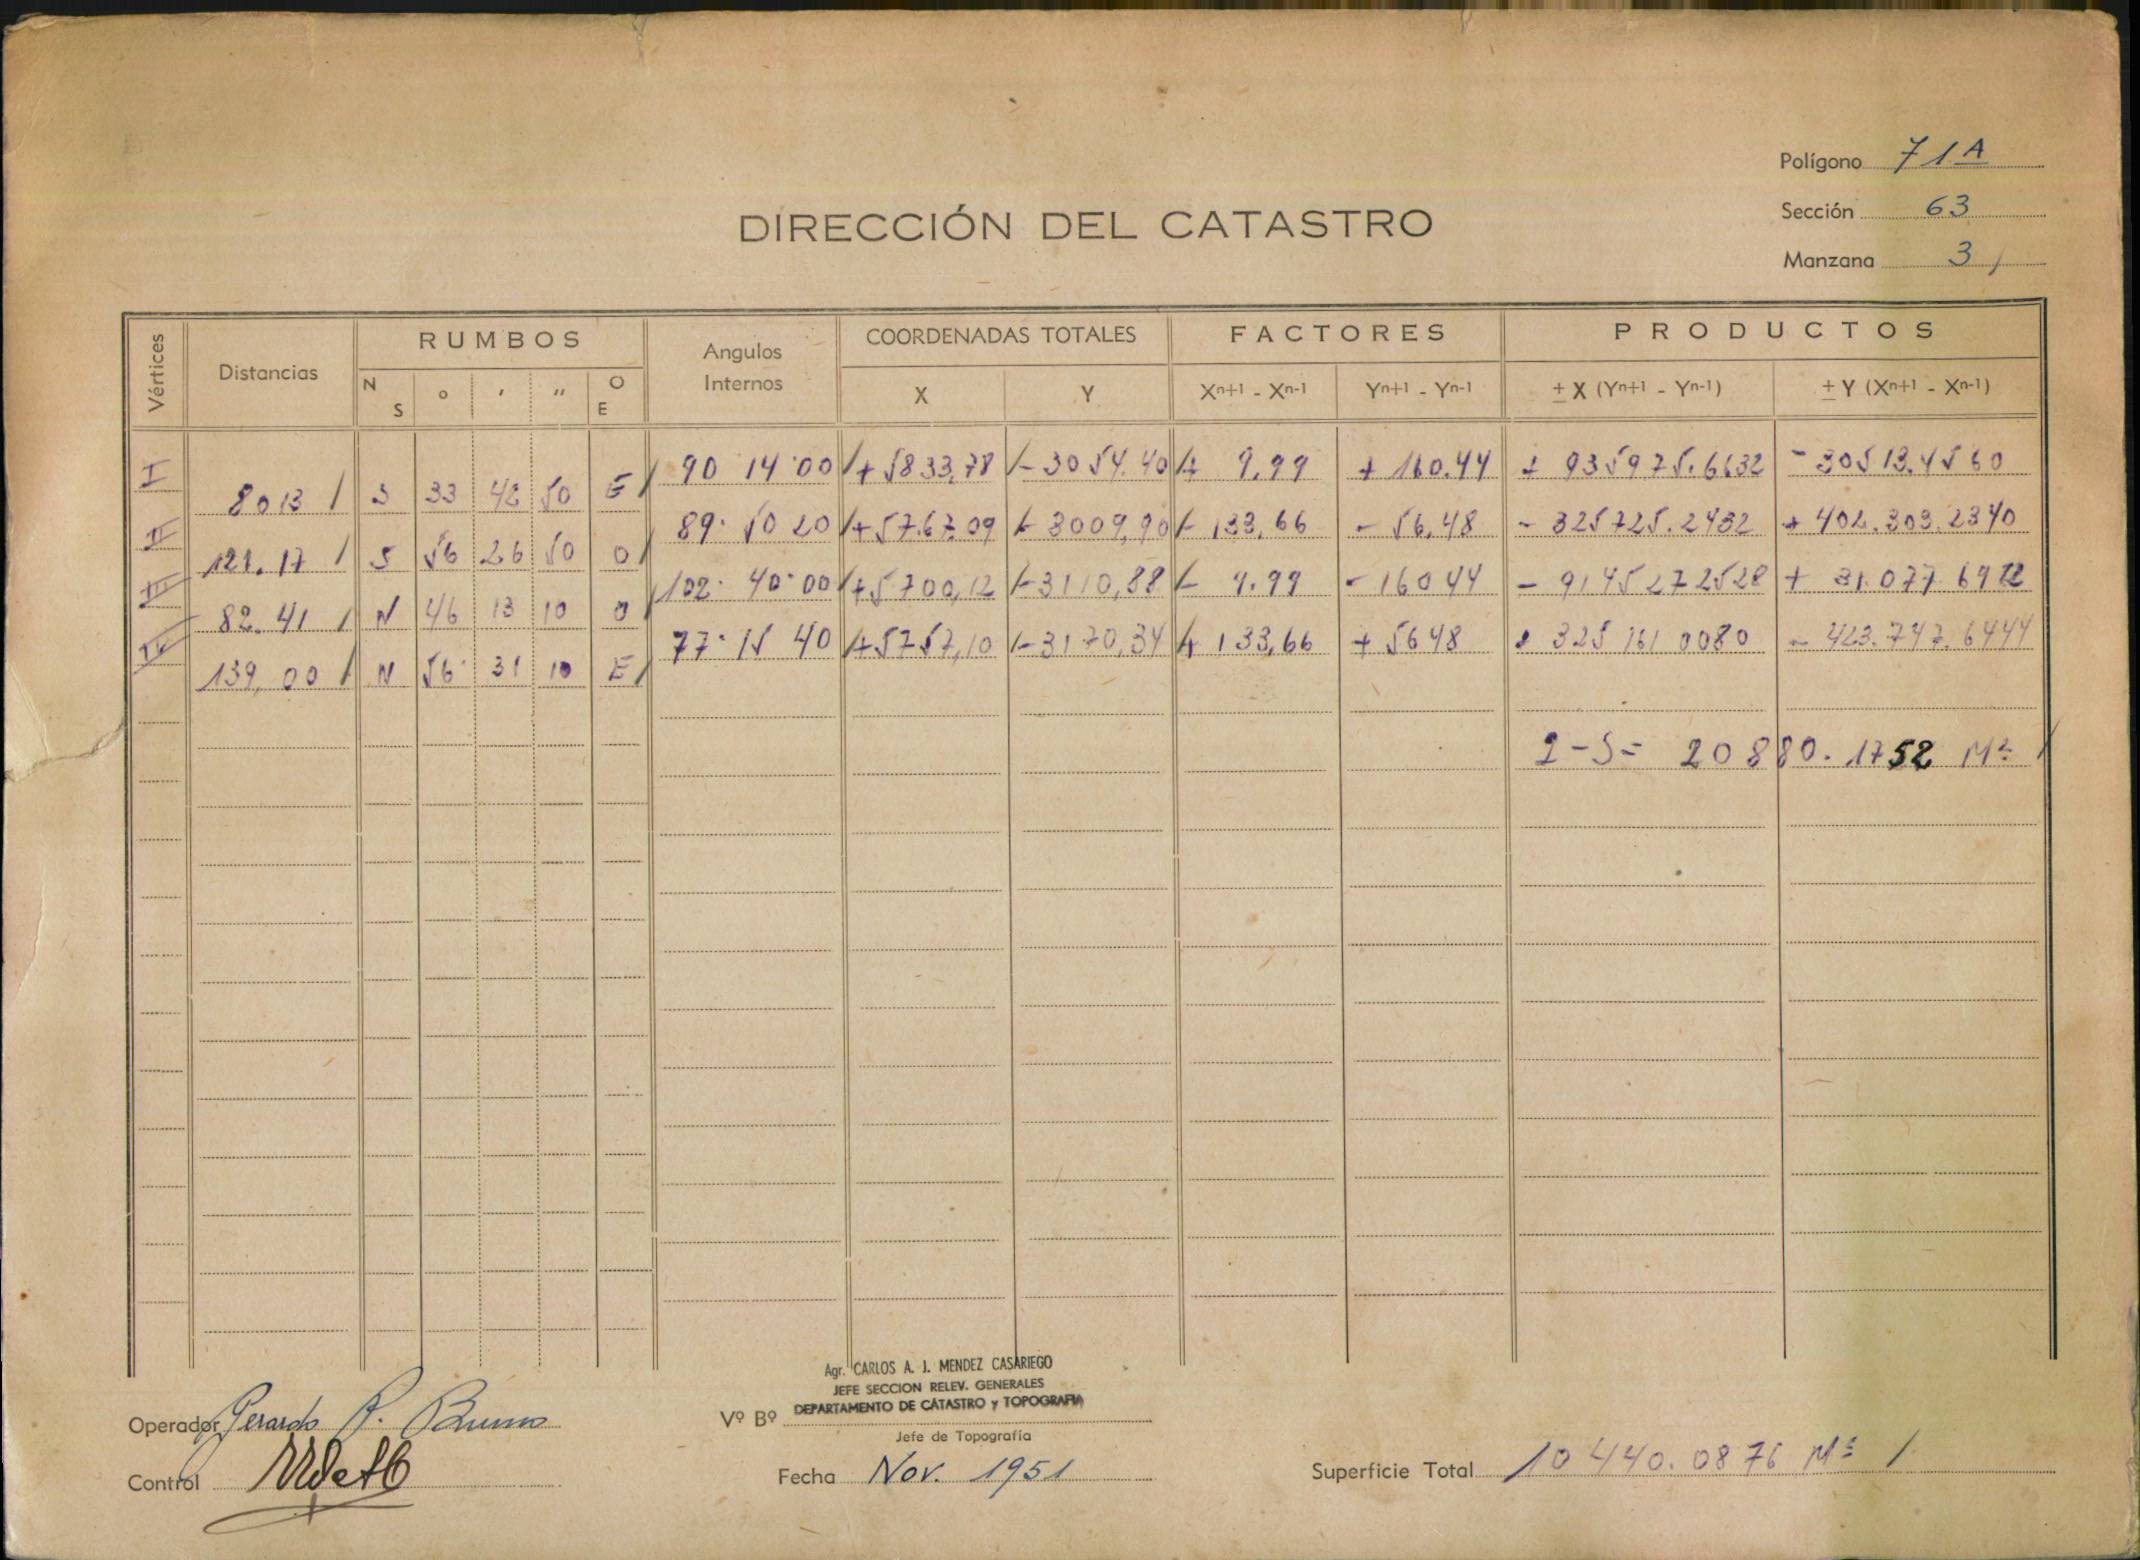 Polígono 71A
Sección 63
DIRECCIÓN DEL CATASTRO
Manzana 3
Vértices Distancias RUMBOS Angulos Internos COORDENADAS TOTALES FACTORES PRODUCTOS
N S ° ' " O E X Y Xn+1 - Xn-1 Yn+1 - Yn-1 ± X (Yn+1 - Yn-1) ± Y (Xn+1 - Xn-1)
I 90 14 00 + 5833,78 - 3054.40 + 9.99 + 160.44 + 935975.6632 - 30513.4560
80 13 S 33 42 50 E
II 89 50 20 + 5767.09 - 3009,90 - 133,66 - 56.48 - 325725.2432 + 402.303.2340
121.17 S 56 26 50 O
III 102 40 00 + 5700,12 - 3110,88 - 9.99 - 160 44 - 914527 2528 + 31.077 6912
82.41 N 46 13 10 O
IV 77 15 40 + 5757,10 - 3170,34 + 133,66 + 56 48 + 325 161 0080 - 423.747.6444
139,00 N 56 31 10 E
2-S= 20880.1752 M²
Agr. CARLOS A. J. MENDEZ CASARIEGO
JEFE SECCION RELEV. GENERALES
DEPARTAMENTO DE CATASTRO y TOPOGRAFIA
Operador Gerardo R. Bruno
Vº Bº
Jefe de Topografía
Control
Fecha Nov. 1951
Superficie Total 10 440.0876 M²